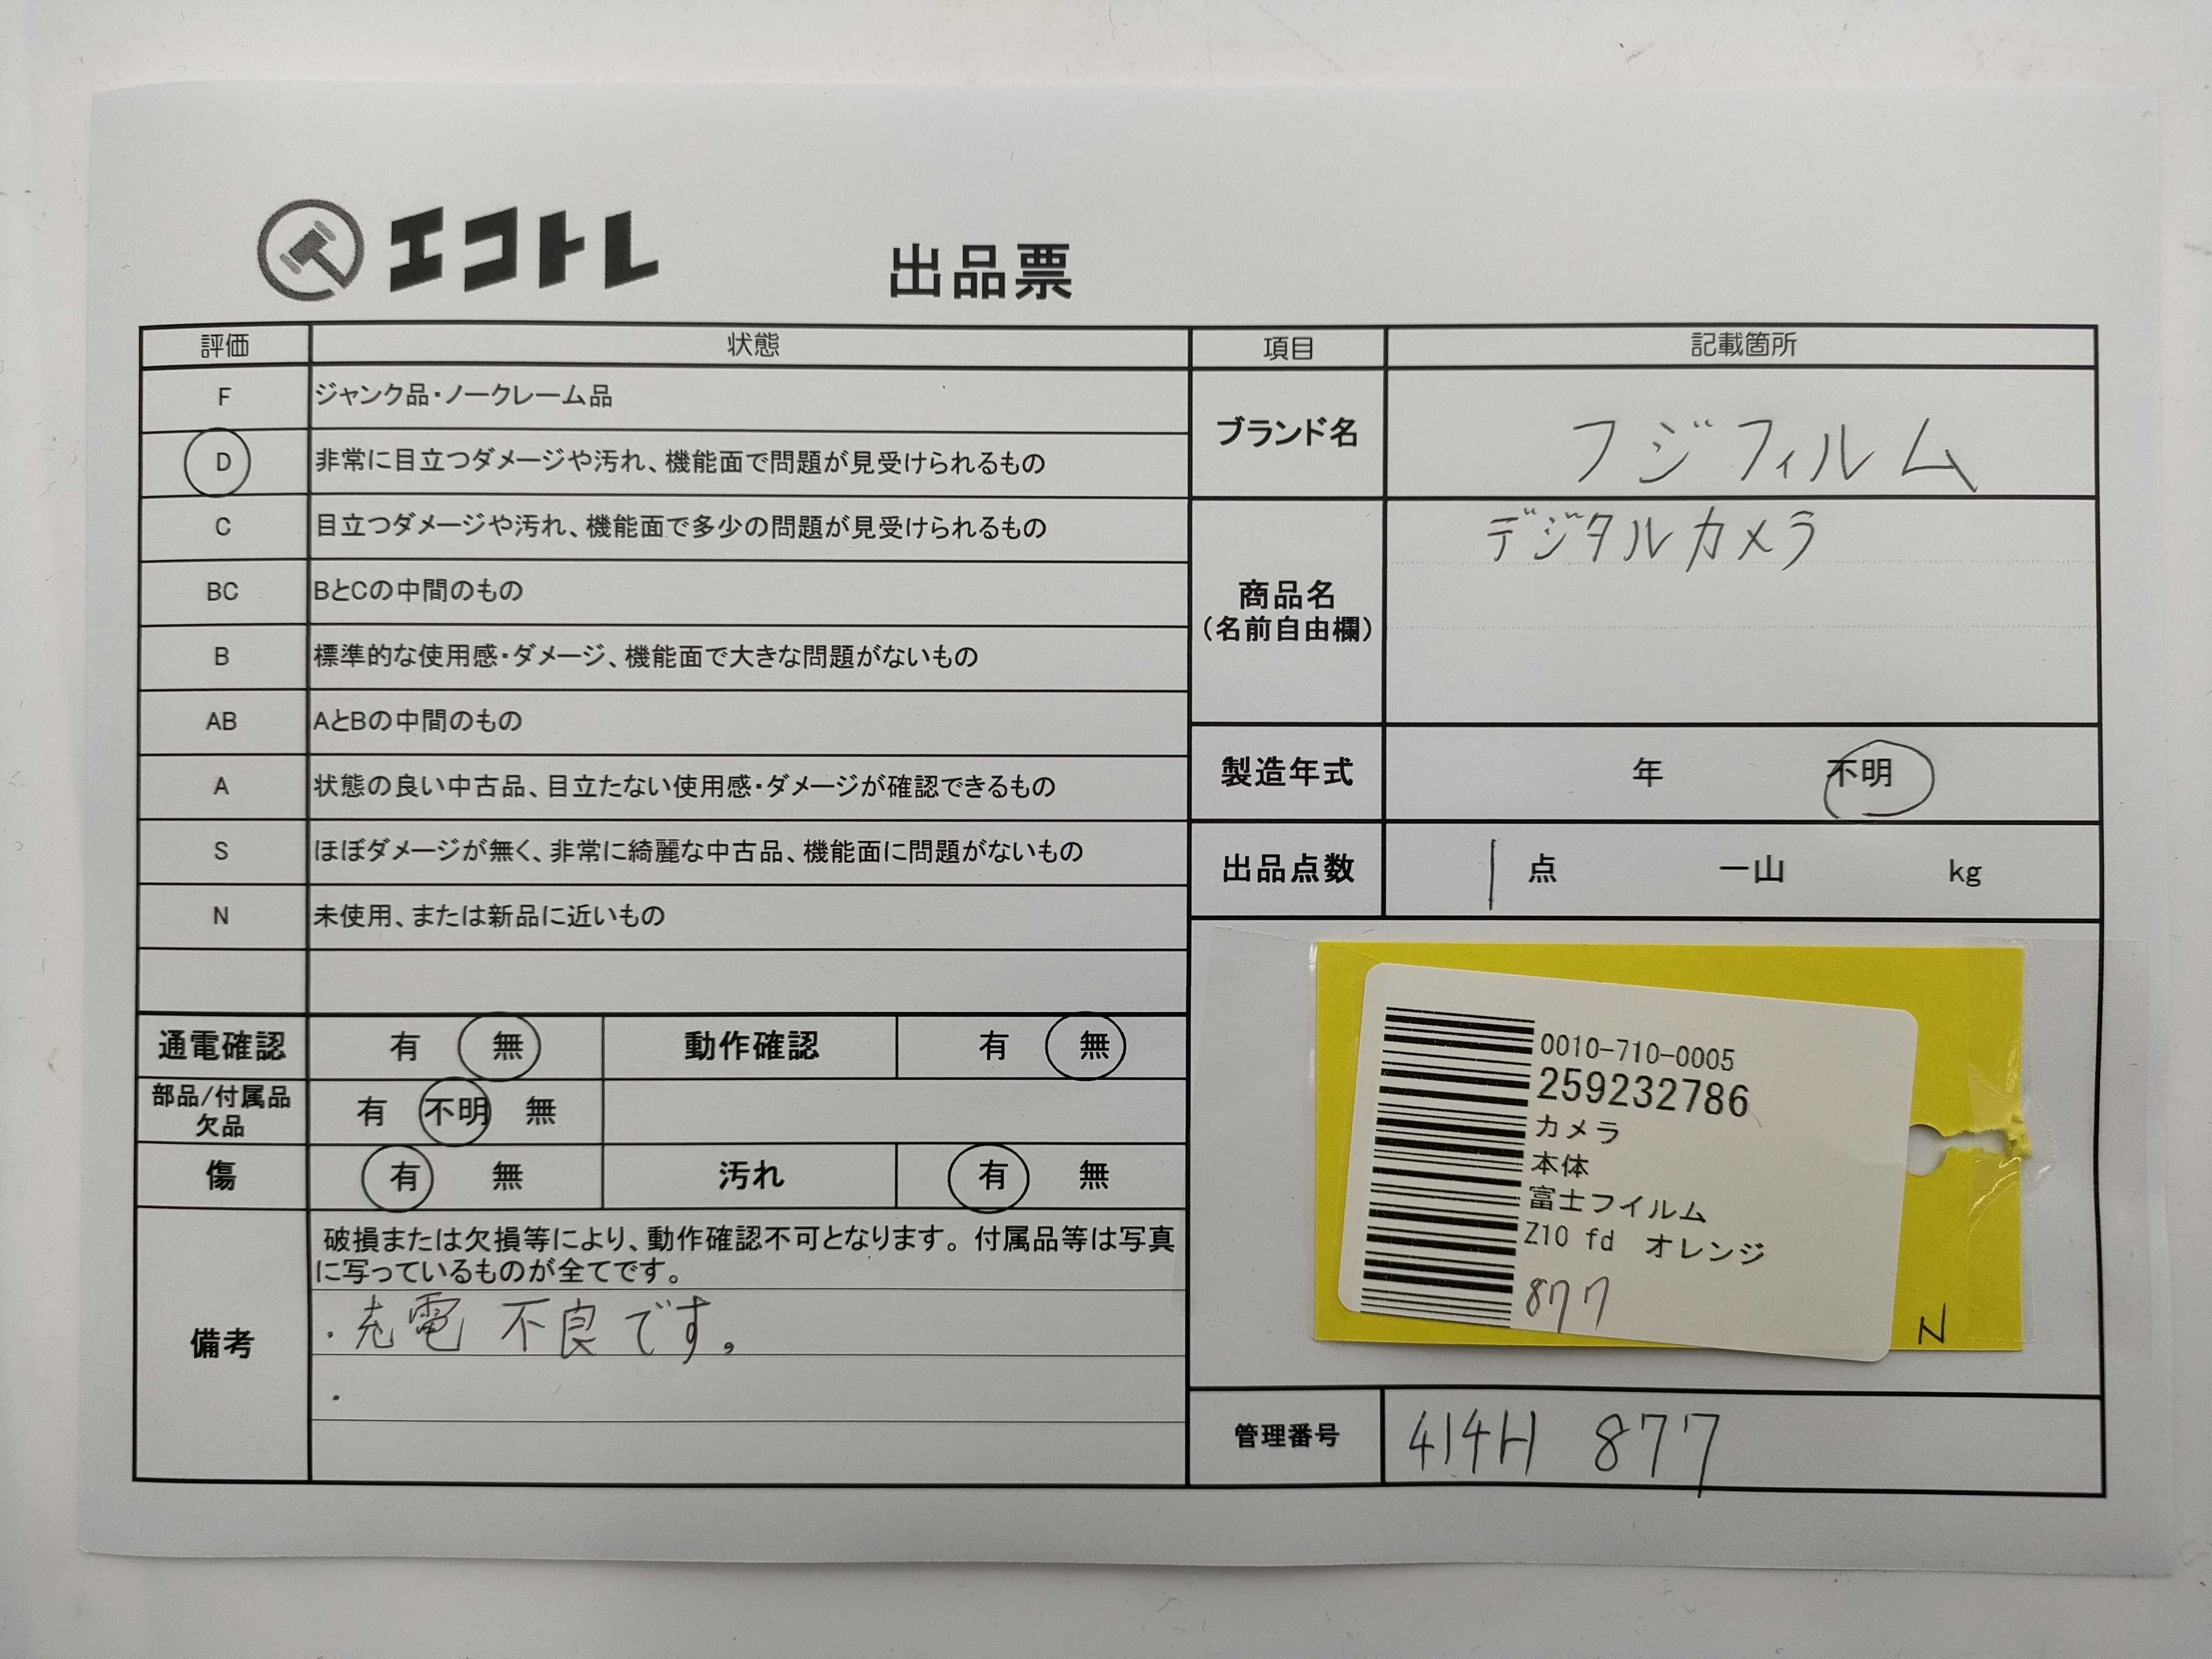 エコトレ
出品票
評価 状態
F ジャンク品・ノークレーム品
D 非常に目立つダメージや汚れ、機能面で問題が見受けられるもの
C 目立つダメージや汚れ、機能面で多少の問題が見受けられるもの
BC BとCの中間のもの
B 標準的な使用感・ダメージ、機能面で大きな問題がないもの
AB AとBの中間のもの
A 状態の良い中古品、目立たない使用感・ダメージが確認できるもの
S ほぼダメージが無く、非常に綺麗な中古品、機能面に問題がないもの
N 未使用、または新品に近いもの
通電確認 有 無 動作確認 有 無
部品/付属品
欠品
有 不明 無
傷 有 無 汚れ 有 無
備考
破損または欠損等により、動作確認不可となります。付属品等は写真
に写っているものが全てです。
・充電 不良です。
・
項目 記載箇所
ブランド名 フジフィルム
商品名
(名前自由欄)
デジタルカメラ
製造年式 年 不明
出品点数 1 点 一山 kg
0010-710-0005
259232786
カメラ
本体
富士フイルム
Z10 fd オレンジ
877
N
管理番号 414H 877